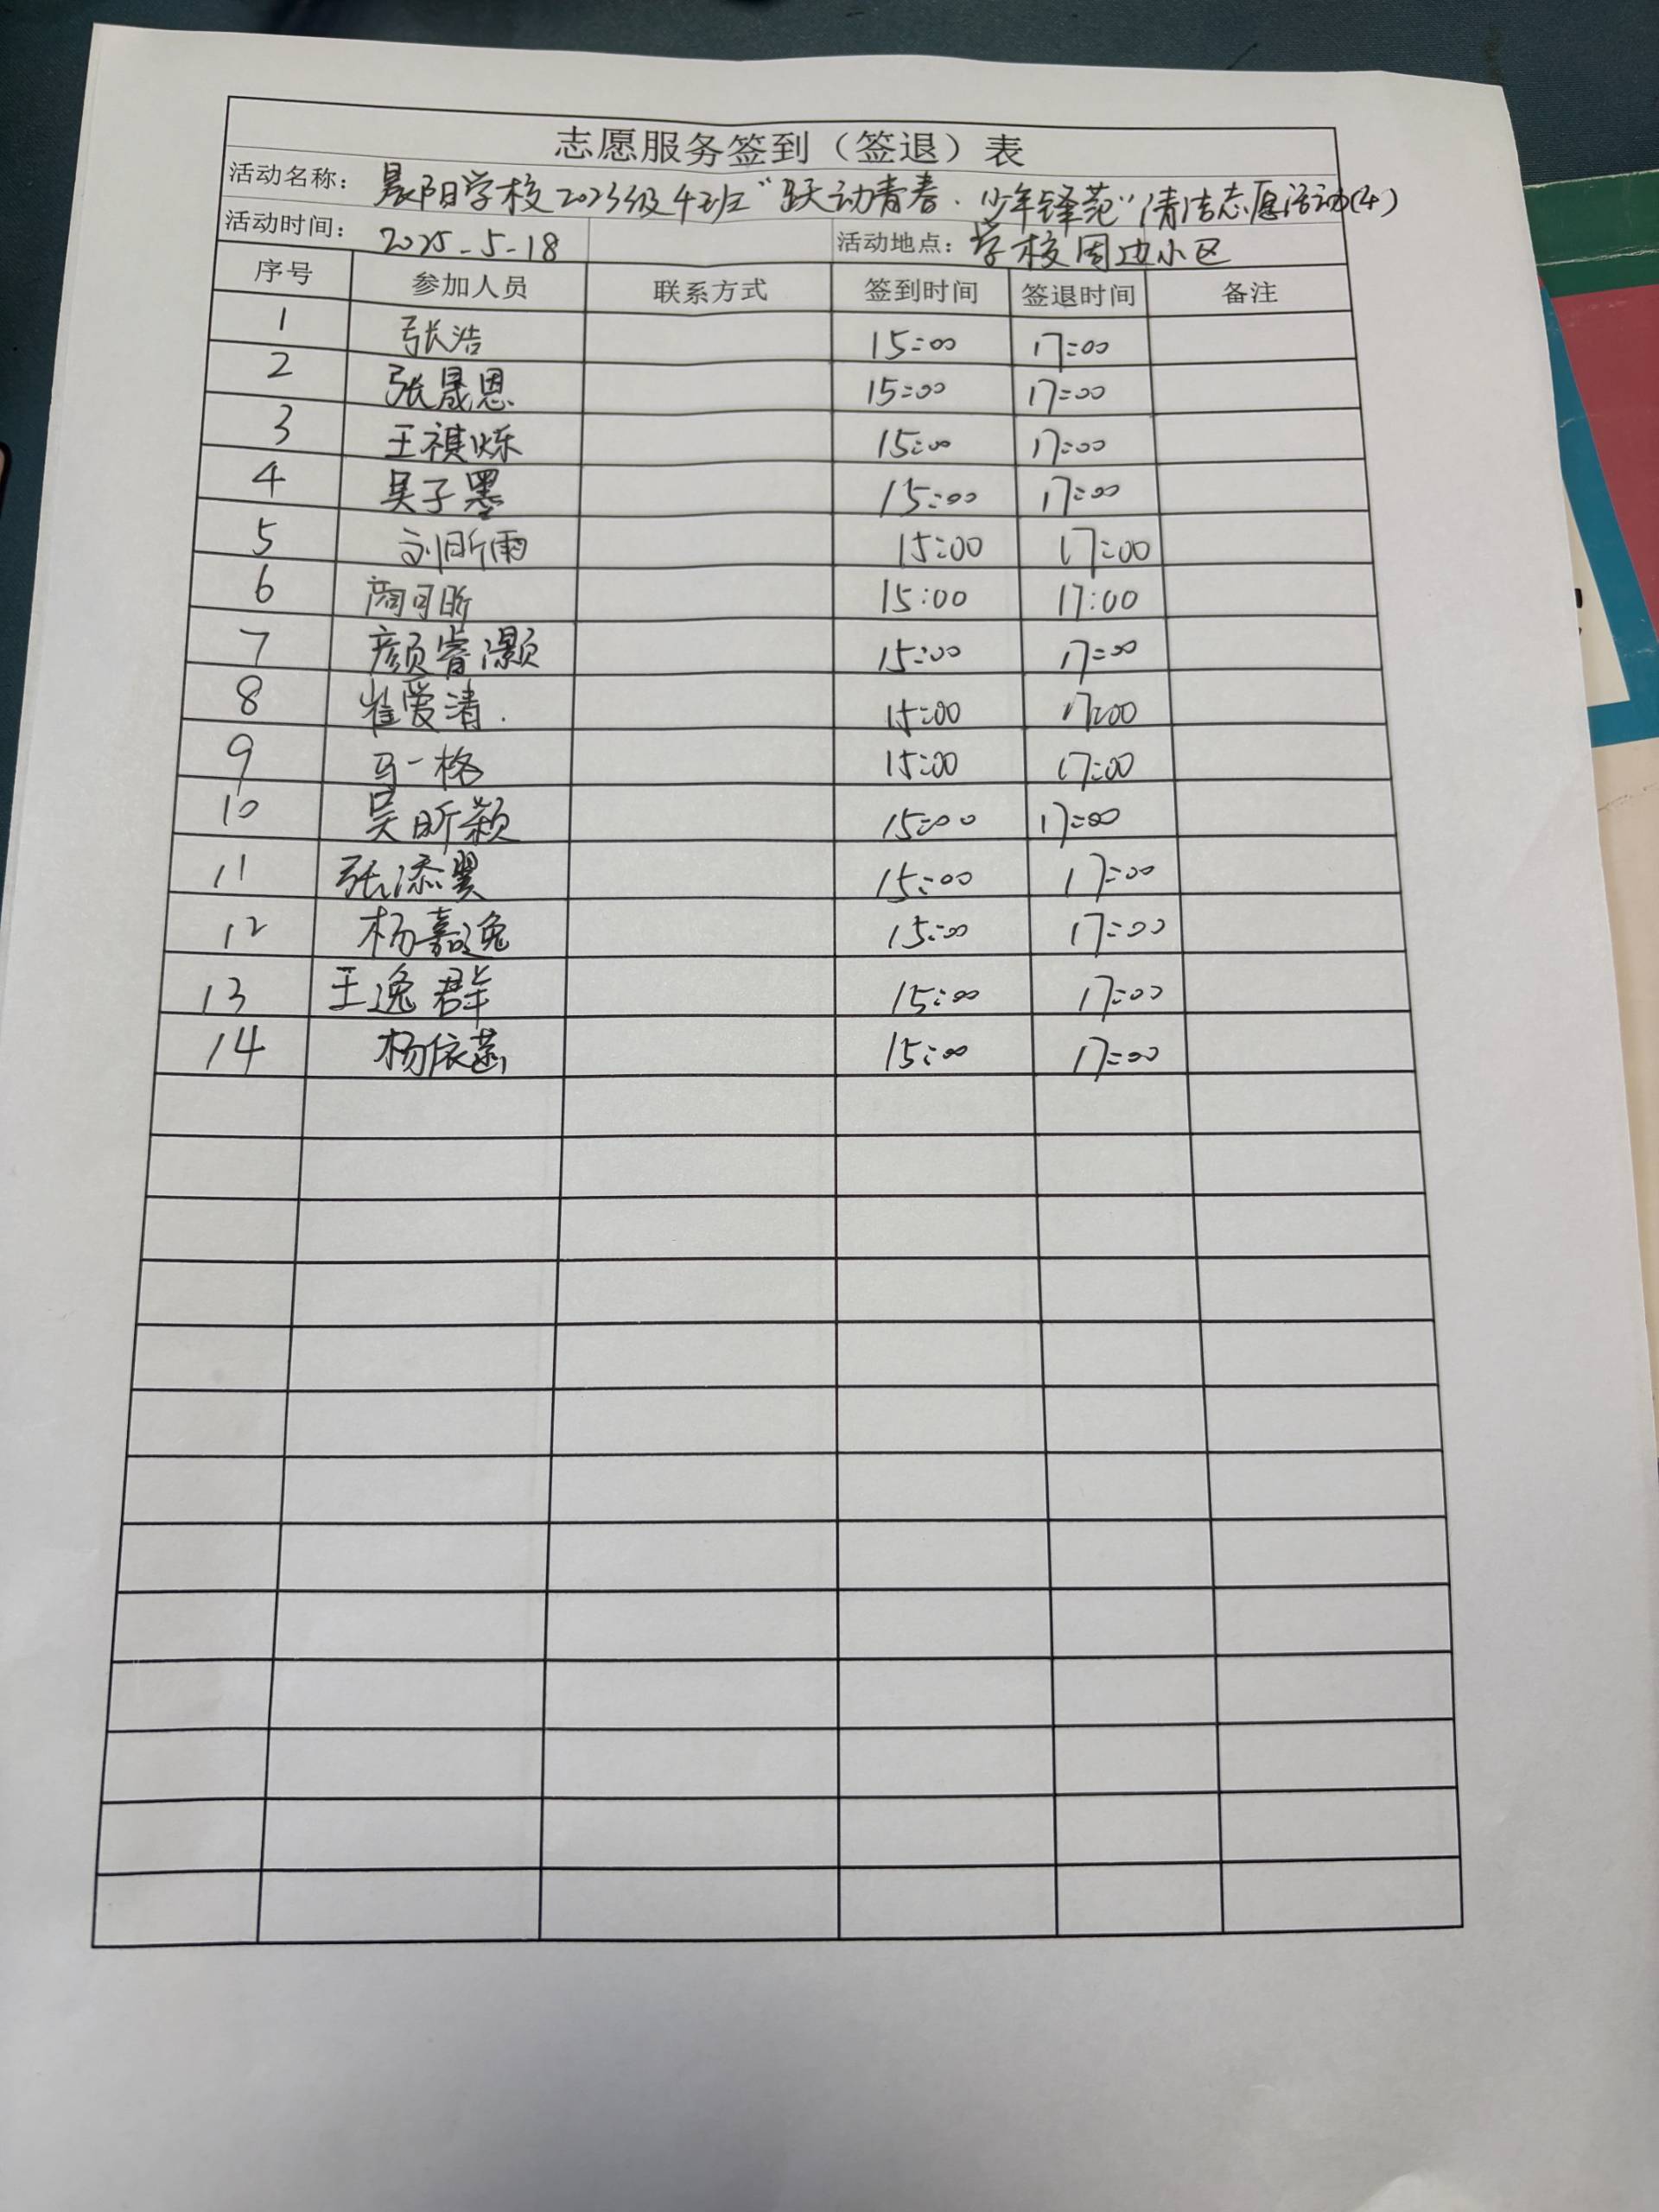 志愿服务签到（签退）表
活动名称：晨阳学校2023级4班“跃动青春·少年锋范”清洁志愿活动(4)
活动时间：2025-5-18 活动地点：学校周边小区
序号 参加人员 联系方式 签到时间 签退时间 备注
1 张浩 15:00 17:00
2 张晟恩 15:00 17:00
3 王祺烁 15:00 17:00
4 吴子墨 15:00 17:00
5 刘昕雨 15:00 17:00
6 商可昕 15:00 17:00
7 颜睿灏 15:00 17:00
8 崔爱清 15:00 17:00
9 马一格 15:00 17:00
10 吴昕颖 15:00 17:00
11 张添翼 15:00 17:00
12 杨嘉逸 15:00 17:00
13 王逸群 15:00 17:00
14 杨依菡 15:00 17:00